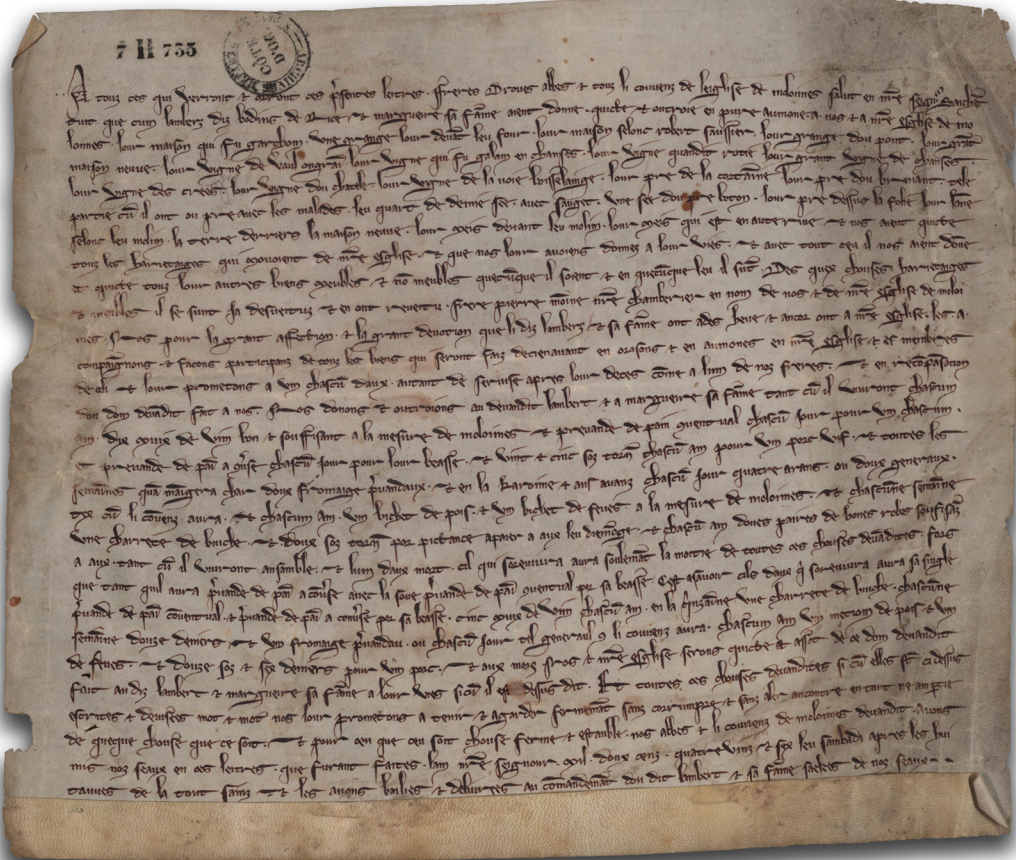 7 H 755
ARCHIVES CÔTE D'OR
A touz ces qui verront & orront ces p̃sentes lettres. Freres Droues abbes & touz li couvenz de leiglise de molomnes salut en nr̃e seigno
que cum lambers diz bodins de & marguerite sa fãme aient donne. quicte & outroie en pure aumone. a nos & a nr̃e Eglise de mo
lomnes. lour maison qui fu garchom. Une grange lour devãt leu four. lour maison selonc robert saussier. lour grange dou pont. lour grãt
maison neuve. lour vigne de lour vigne qui fu galam en chanses. lour vigne quandit rotie lour grant vigne de chanses.
lour vigne des crees. lour vigne dou chacele. lour vigne de la voie loisselainge. lour pre de la cortaine lour pre dou bruiant. tele
partie cũ il ont ou pre avec les malades. leu quart de deme ser. avec sauget. une ser dou pre boton. lour pre dessus la folie lour
selonc leu molin. la terre derriers la maison neuve. lour meis devant leu molin. lour meis qui est en auterive. & nos aient quicte
touz les harretaiges qui movoient de nr̃e Eglise. & que nos lour aviens donnez a lour vies. & avec tout ceu il nos aient dõne
et quicte touz lour autres biens meubles. & nõ meubles quecũque il soient & en quecũque leu il sũt. Des quex chouses harretaiges
& meubles il se sunt ja desvestuz & en ont revestu. frere pierre moine nr̃e chamberier en nom de nos. & de nr̃e eglise de molo
mes. Nos pour la grant affection. & la grant devotion que li diz lambers. & sa fãme ont ades heue. & ancor ont a nr̃e Eglise. les a.
compaignons. & facons participans de touz les biens qui seront faiz decienavant en orisons & en aumones en nr̃e Eglise. & es membres
de celi. & lour prometons a un chascũ daux. autant de servise apres lour deces cõme a lun de noz freres. & en recõpasacion
dou dom devãdit fait a nos. Nos dõnons & outroions au devandit lambert & a marguerite sa fãme tant cũ il vivront chascun
an. dix muis de vin bon & souffisant a la mesure de molomes. & prevande de pain quentval chascũ jour pour un chascun.
& prevande de pãi a chascũ jour pour lour beasse. & vint & cinc soz torñ chascũ an pour un porc vif. & toutes les
semaines quã mãigera char doux fromaige p̃vandaux. & en la Karonne. & aus avanz chascũ jour quatre arans. ou doux generaux.
tex cũ li covenz aura. & chascun an. un bichet de pois. & un bichet de feves. a la mesure de molomes. & chascune semaine
une charrete de buiche. & doux soz torñ por pictance apaier a aux leu diemoge. & chascũ an doues paires de bones robes soufisãz
a aux. tant cũ il vivront ansamble. & luns daux mort. cil qui sorvivra aura soulemãt la moitie de toutes ces chouses devãdites. fors
que tant quil aura p̃vande de pãi a cõverse avec la soue p̃vande de pãi quentval por sa beasse. Cest asavoir cils daux q̃ sorvivra aura sa single
p̃vande de pãi coventval. & p̃vande de pãi a converse por sa beasse. cinc muis de vin chascũ an. en la une charrete de buiche. chascune
semaine douze deniers. & un fromaige p̃vandau. ou chascũ jour tel general q̃ li covenz aura. chascun an un meitom de pois. & un
de feves. & douze soz & sex deniers pour un porc. & aux morz Nos & nr̃e Eglise serons quictes & de ce dom devandit
fait au diz lambert & marguerite sa fãme a lour vies si cũ il est desus dit. Et toutes ces chouses devandites si cũ elles sõt ci desus
escrites & devisees mot & mot nos lour prometons a tenir & agarder fermemãt sanz corrumpre & sanz aler ancontre en tout ne am ptie
de queque chouse que ce soit. & pour ceu que ceu soit chouse ferme & estauble. nos abbes & li couvenz de molomes devandit. avons
mis noz seaux en ces lettres. que furant faites lam nr̃e seignour mil. doux cenz. quatre vinz & sex leu sambadi apres les hui
tauves de la tout sainz. & les avons bailies & delivrees au comãdemãt dou dit lambert & sa fãme saelees de noz seaux.